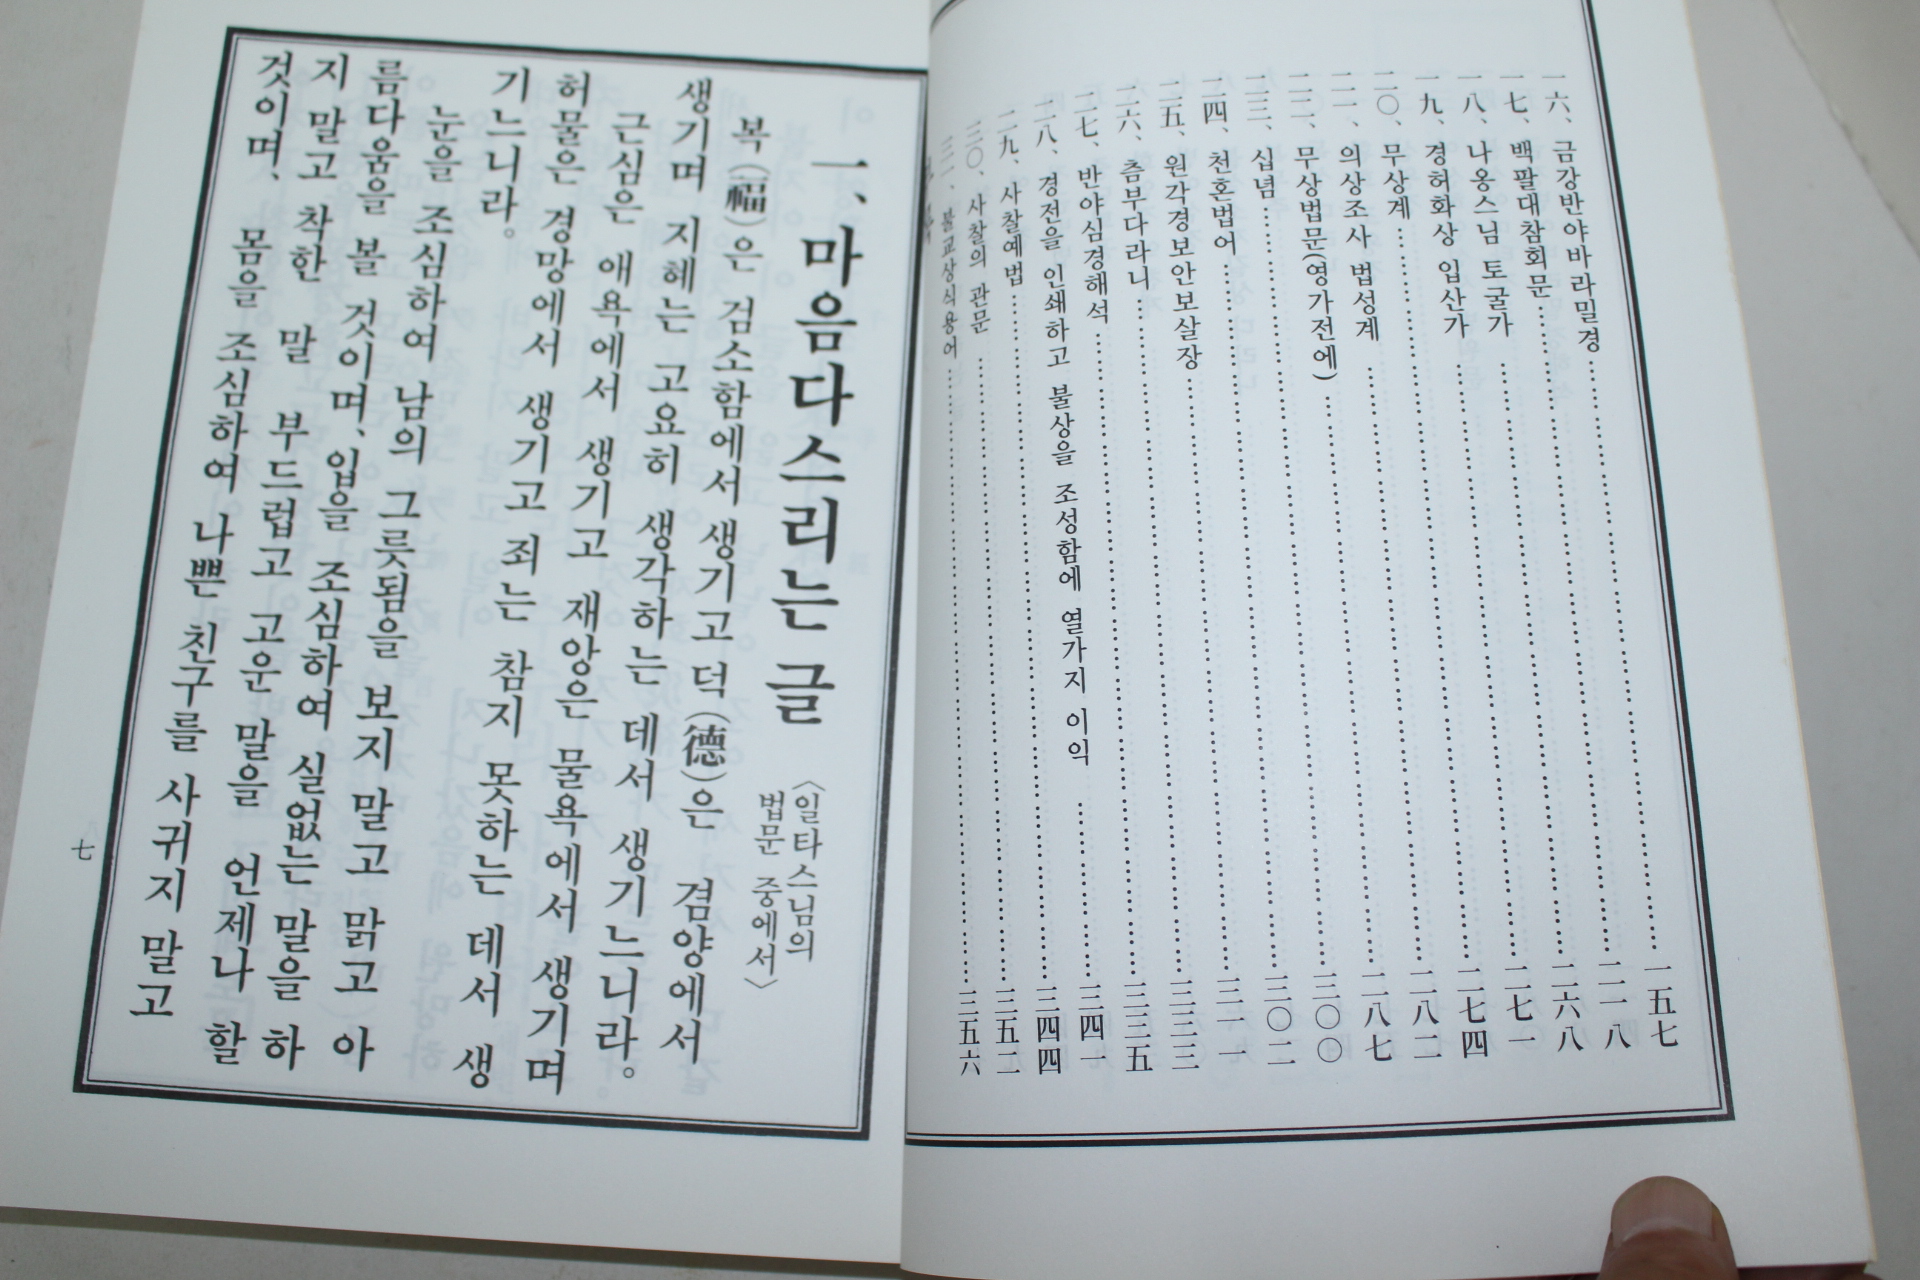 一六、금강반야바라밀경 …… 一五七
一七、백팔대참회문 …… 二一八
一八、나옹스님 토굴가 …… 二六八
一九、경허화상 입산가 …… 二七一
二〇、무상계 …… 二七四
二一、의상조사 법성계 …… 二八二
二二、무상법문(영가전에) …… 二八七
二三、십념 …… 三〇〇
二四、천혼법어 …… 三〇二
二五、원각경보안보살장 …… 三一一
二六、츰부다라니 …… 三三三
二七、반야심경해석 …… 三三五
二八、경전을 인쇄하고 불상을 조성함에 열가지 이익 …… 三四一
二九、사찰예법 …… 三四四
三〇、사찰의 관문 …… 三五二
三一、불교상식용어 …… 三五六
一、마음다스리는 글
〈일타스님의
법문 중에서〉
복(福)은 검소함에서 생기고 덕(德)은 겸양에서
생기며 지혜는 고요히 생각하는 데서 생기느니라。
근심은 애욕에서 생기고 재앙은 물욕에서 생기며
허물은 경망에서 생기고 죄는 참지 못하는 데서 생
기느니라。
눈을 조심하여 남의 그릇됨을 보지 말고 맑고 아
름다움을 볼 것이며、입을 조심하여 실없는 말을 하
지 말고 착한 말 부드럽고 고운 말을 언제나 할
것이며、몸을 조심하여 나쁜 친구를 사귀지 말고
七